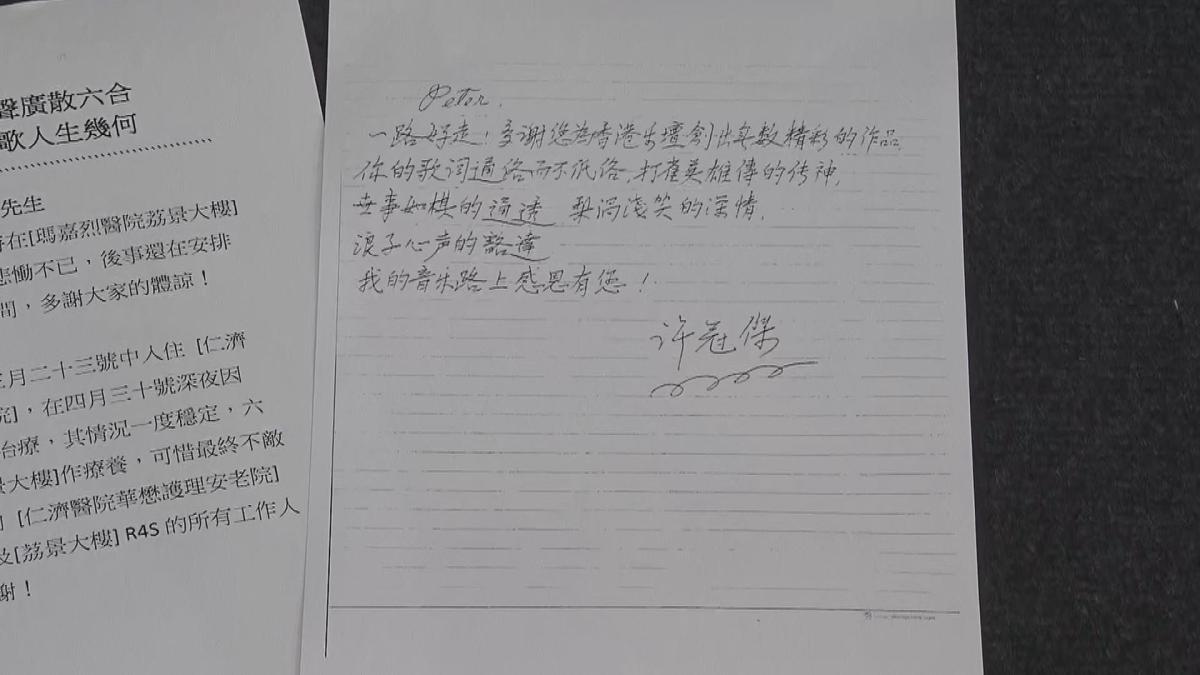 聲廣散六合
歌人生幾何
先生
在[瑪嘉烈醫院荔景大樓]
悲慟不已，後事還在安排
間，多謝大家的體諒！
月二十三號中入住 [仁濟
院]，在四月三十號深夜因
治療，其情況一度穩定，六
景大樓]作療養，可惜最終不敵
[仁濟醫院華懋護理安老院]
及[荔景大樓] R4S 的所有工作人
謝！
Peter,
一路好走！多謝您為香港乐壇創出無数精彩的作品,
你的歌词通俗而不低俗,打雀英雄傳的传神,
世事如棋的通透 梨渦淺笑的深情,
浪子心声的豁達
我的音乐路上感恩有您！
许冠傑